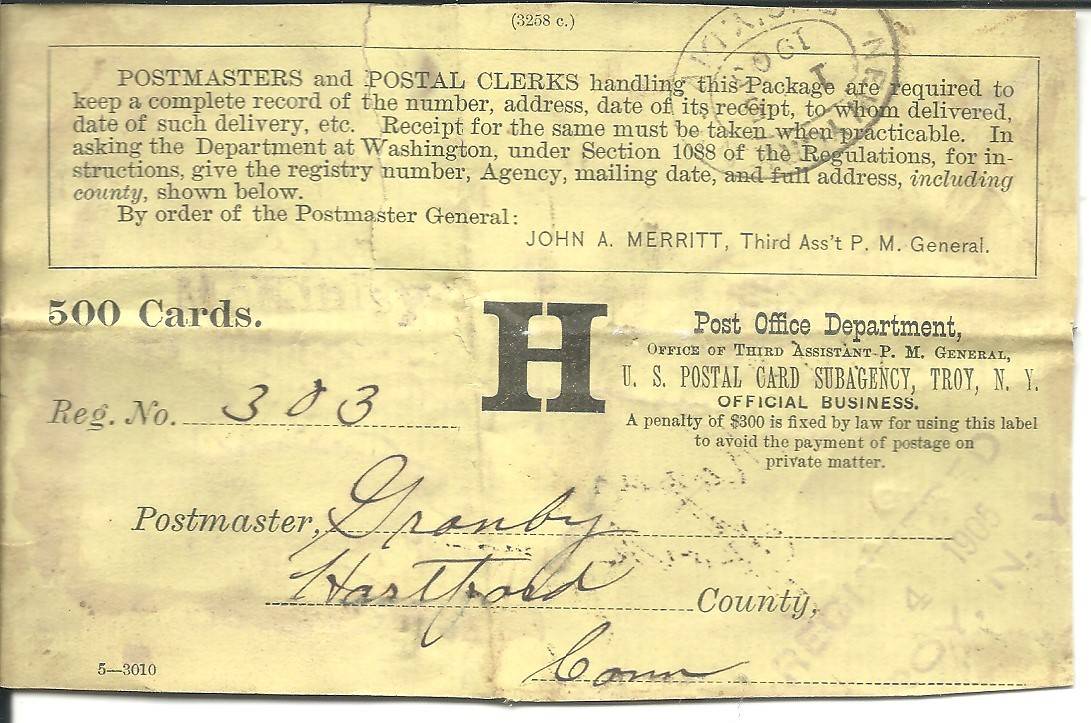 (3258 c.)
POSTMASTERS and POSTAL CLERKS handling this Package are required to
keep a complete record of the number, address, date of its receipt, to whom delivered,
date of such delivery, etc. Receipt for the same must be taken when practicable. In
asking the Department at Washington, under Section 1088 of the Regulations, for in-
structions, give the registry number, Agency, mailing date, and full address, including
county, shown below.
By order of the Postmaster General:
JOHN A. MERRITT, Third Ass't P. M. General.
500 Cards.
H
Post Office Department,
OFFICE OF THIRD ASSISTANT P. M. GENERAL,
U. S. POSTAL CARD SUBAGENCY, TROY, N. Y.
OFFICIAL BUSINESS.
A penalty of $300 is fixed by law for using this label
to avoid the payment of postage on
private matter.
Reg. No. 303
Postmaster, Granby
Hartford County,
Conn
5—3010